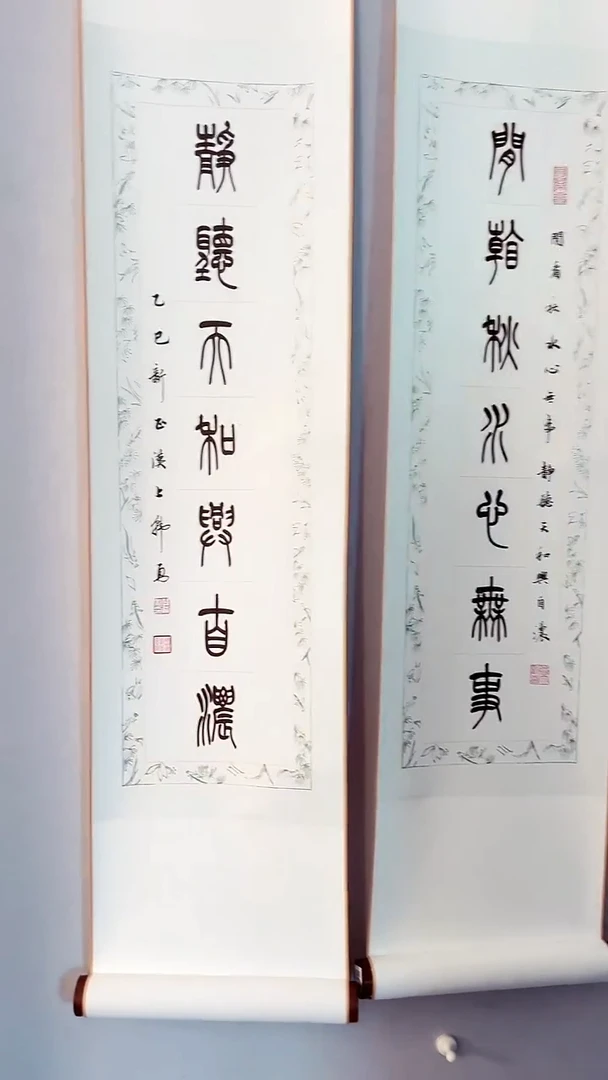 閒看秋水心無事靜聽天和興自濃
閒看秋水心無事
靜聽天和興自濃
乙巳新正漢上